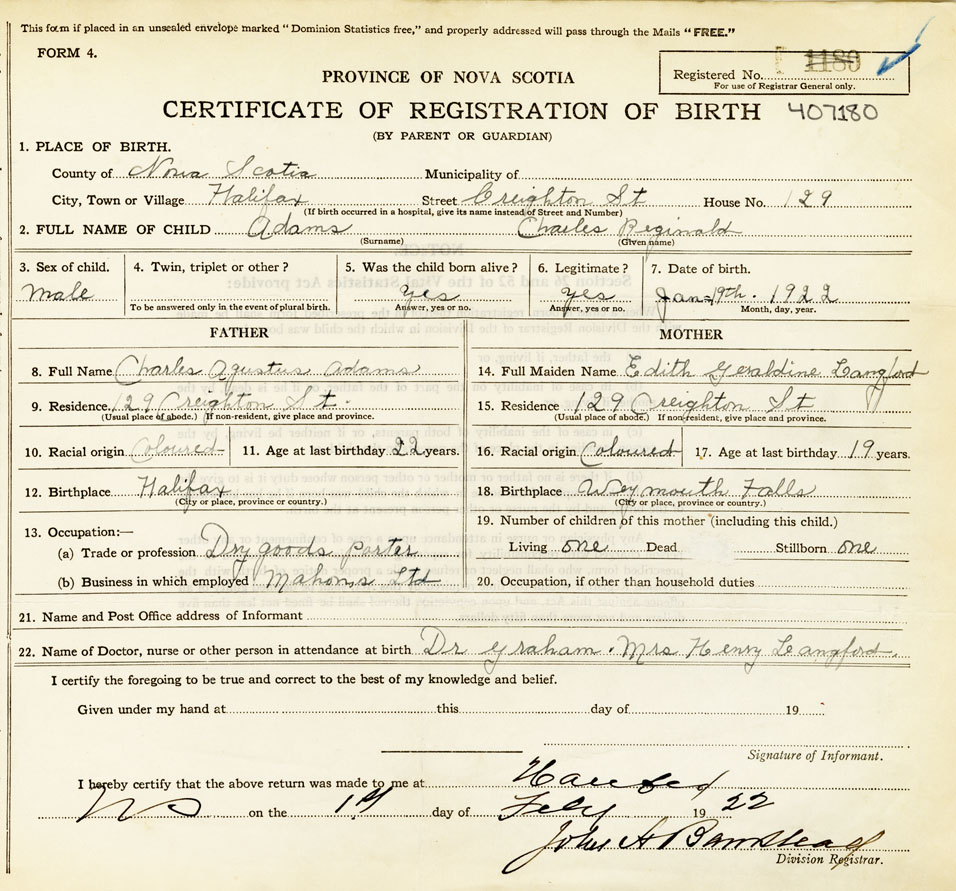 This form if placed in an unsealed envelope marked "Dominion Statistics free," and properly addressed will pass through the Mails "FREE."
FORM 4.
PROVINCE OF NOVA SCOTIA
Registered No. 1180
For use of Registrar General only.
CERTIFICATE OF REGISTRATION OF BIRTH 407180
(BY PARENT OR GUARDIAN)
1. PLACE OF BIRTH.
County of Nova Scotia Municipality of
City, Town or Village Halifax Street Creighton St House No. 129
(If birth occurred in a hospital, give its name instead of Street and Number)
2. FULL NAME OF CHILD Adams Charles Reginald
(Surname) (Given name)
3. Sex of child. 4. Twin, triplet or other? 5. Was the child born alive? 6. Legitimate? 7. Date of birth.
male yes yes Jan 19th. 1922
To be answered only in the event of plural birth. Answer, yes or no. Answer, yes or no. Month, day, year.
FATHER MOTHER
8. Full Name Charles Agustus Adams 14. Full Maiden Name Edith Geraldine Langford
9. Residence 129 Creighton St. 15. Residence 129 Creighton St
(Usual place of abode.) If non-resident, give place and province. (Usual place of abode.) If non-resident, give place and province.
10. Racial origin Coloured 11. Age at last birthday 22 years. 16. Racial origin Coloured 17. Age at last birthday 19 years.
12. Birthplace Halifax 18. Birthplace Weymouth Falls
(City or place, province or country.) (City or place, province or country.)
13. Occupation:— 19. Number of children of this mother (including this child.)
(a) Trade or profession Dry goods porter Living one Dead Stillborn one
(b) Business in which employed Mahons Ltd 20. Occupation, if other than household duties
21. Name and Post Office address of Informant
22. Name of Doctor, nurse or other person in attendance at birth Dr Graham. Mrs Henry Langford.
I certify the foregoing to be true and correct to the best of my knowledge and belief.
Given under my hand at this day of 19
Signature of Informant.
I hereby certify that the above return was made to me at Halifax
NS on the 1st day of Feby 1922
John A Barnstead
Division Registrar.